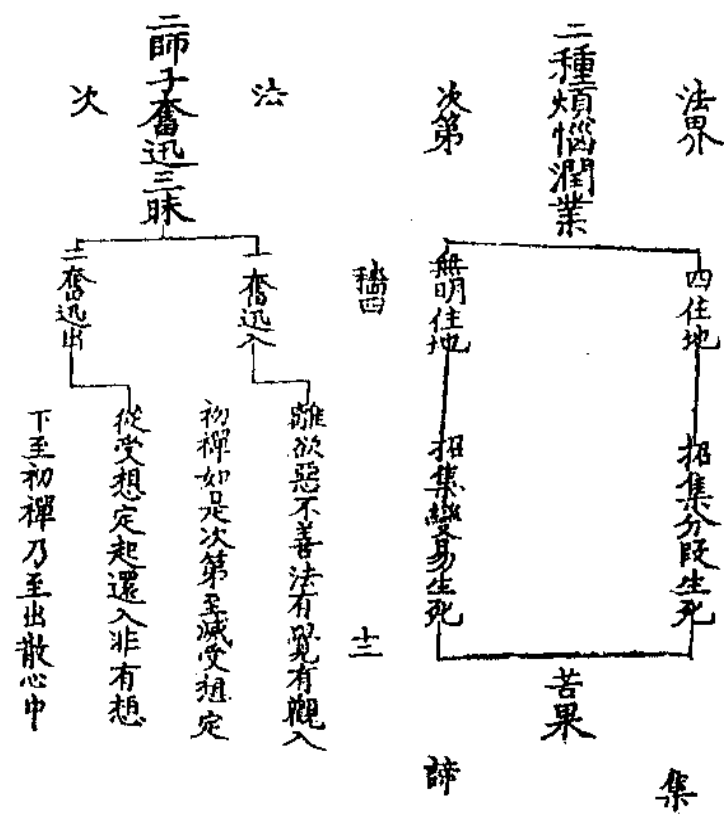 法界
集
二種煩惱潤業
四住地
招集分段生死
無明住地
招集變易生死
苦果
次第
諦
十三
法
次
二師子奮迅三昧
一奮迅入
離欲惡不善法有覺有觀入
初禪如是次第至滅受想定
二奮迅出
從受想定起還入非有想
下至初禪乃至出散心中